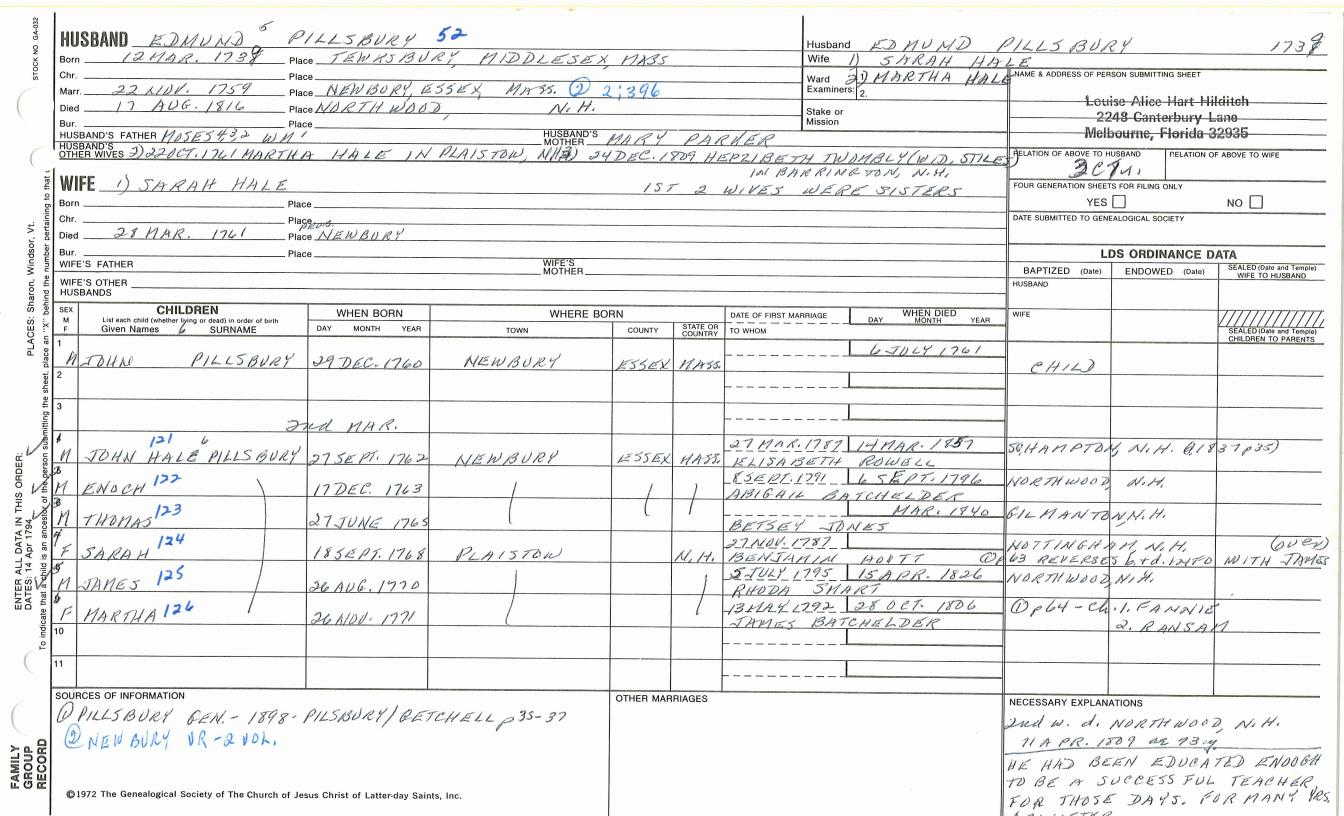 STOCK NO. GA-032
HUSBAND EDMUND 5 PILLSBURY 52
Born 12 MAR. 1738 Place TEWKSBURY, MIDDLESEX, MASS
Chr. Place
Marr. 22 NOV. 1759 Place NEWBURY, ESSEX, MASS. ② 2;396
Died 17 AUG. 1816 Place NORTHWOOD, N.H.
Bur. Place
HUSBAND'S FATHER MOSES 4,3,2 WM 1 HUSBAND'S MOTHER MARY PARKER
HUSBAND'S OTHER WIVES 2) 22 OCT. 1761 MARTHA HALE IN PLAISTON, NH 3) 24 DEC. 1809 HEPZIBETH TWOMBLY (WID. STILES)
IN BARRINGTON, N.H.
WIFE 1) SARAH HALE 1ST 2 WIVES WERE SISTERS
Born Place
Chr. Place
Died 28 MAR. 1761 Place NEWBURY
Bur. Place
WIFE'S FATHER WIFE'S MOTHER
WIFE'S OTHER HUSBANDS
Husband EDMUND PILLSBURY 1739
Wife 1) SARAH HALE
Ward 2) MARTHA HALE
Examiners: 2.
Stake or Mission
NAME & ADDRESS OF PERSON SUBMITTING SHEET
Louise Alice Hart Hilditch
2248 Canterbury Lane
Melbourne, Florida 32935
RELATION OF ABOVE TO HUSBAND RELATION OF ABOVE TO WIFE
FOUR GENERATION SHEETS FOR FILING ONLY
YES NO
DATE SUBMITTED TO GENEALOGICAL SOCIETY
LDS ORDINANCE DATA
BAPTIZED (Date) ENDOWED (Date) SEALED (Date and Temple) WIFE TO HUSBAND
HUSBAND
WIFE
SEALED (Date and Temple) CHILDREN TO PARENTS
SEX M F CHILDREN WHEN BORN WHERE BORN DATE OF FIRST MARRIAGE WHEN DIED
List each child (whether living or dead) in order of birth
Given Names 6 SURNAME DAY MONTH YEAR TOWN COUNTY STATE OR COUNTRY TO WHOM DAY MONTH YEAR
1 M JOHN PILLSBURY 29 DEC. 1760 NEWBURY ESSEX MASS. 6 JULY 1761 CHILD
2
3 2nd MAR.
4 M JOHN HALE 121 6 PILLSBURY 27 SEPT. 1762 NEWBURY ESSEX MASS. 27 MAR. 1787 14 MAR. 1837 SO HAMPTON, N.H. (1837 p35)
ELISABETH ROWELL
M ENOCH 122 17 DEC. 1763 8 SEPT. 1791 6 SEPT. 1796 NORTHWOOD, N.H.
ABIGAIL BATCHELDER
M THOMAS 123 27 JUNE 1765 MAR. 1840 GILMANTON, N.H.
BETSEY JONES
F SARAH 124 18 SEPT. 1768 PLAISTOW N.H. 27 NOV. 1787 NOTTINGHAM, N.H. (OVER)
BENJAMIN HOYTT ① p 63 REVERSES b+d. INFO WITH JAMES
M JAMES 125 26 AUG. 1770 5 JULY 1795 15 APR. 1826 NORTHWOOD, N.H.
RHODA SMART
F MARTHA 126 26 NOV. 1771 13 MAY, 1792 28 OCT. 1806 ① p64 - Ch. 1. FANNIE
JAMES BATCHELDER 2. RANSAM
10
11
SOURCES OF INFORMATION
① PILLSBURY GEN. - 1898 - PILSBURY/GETCHELL p 35-37
② NEWBURY VR - 2 VOL.
OTHER MARRIAGES
NECESSARY EXPLANATIONS
2nd w. d. NORTHWOOD, N.H.
11 APR. 1809 ae 73 y.
HE HAD BEEN EDUCATED ENOUGH
TO BE A SUCCESSFUL TEACHER,
FOR THOSE DAYS. FOR MANY YRS.
©1972 The Genealogical Society of The Church of Jesus Christ of Latter-day Saints, Inc.
PLACES: Sharon, Windsor, Vt.
ENTER ALL DATA IN THIS ORDER:
DATES: 14 Apr 1794
To indicate that a child is an ancestor of the person submitting the sheet, place an "X" behind the number pertaining to that
FAMILY GROUP RECORD